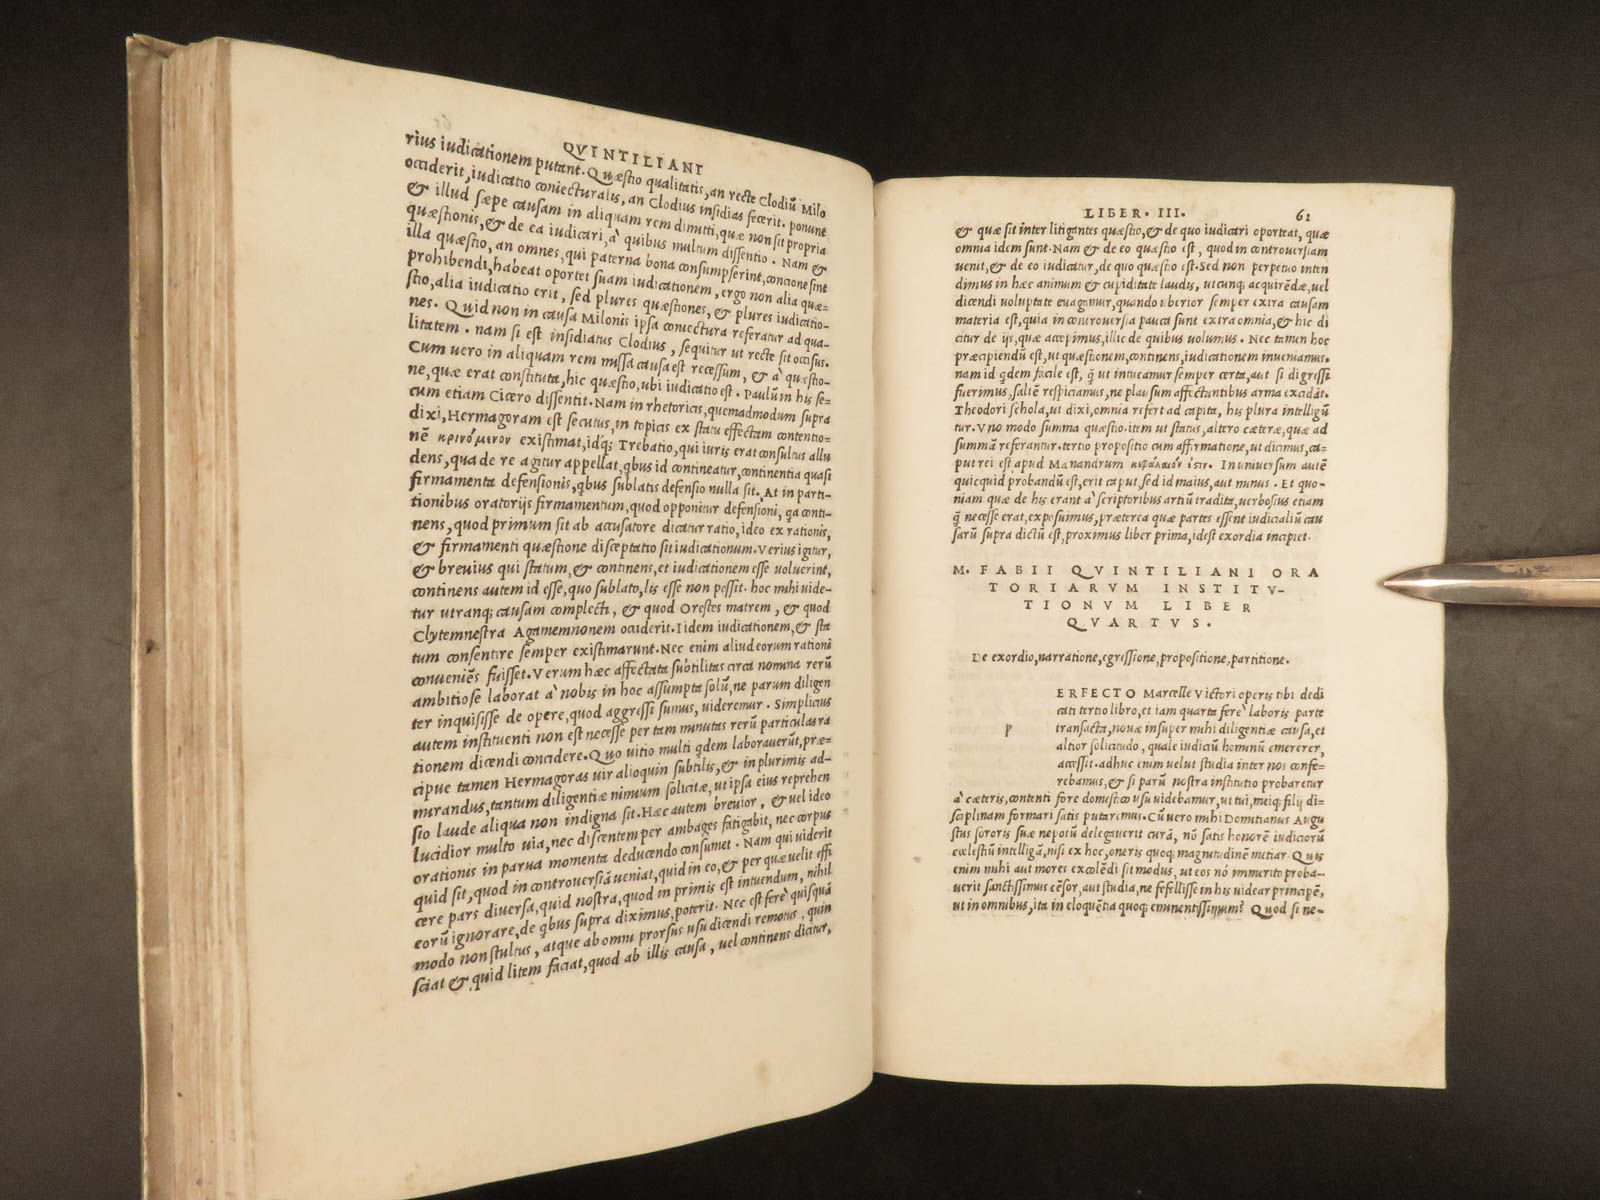 QVINTILIANI
rius iudicationem putant. Quæstio qualitatis, an recte Clodiũ Milo
occiderit, iudicatio coniecturalis, an Clodius insidias fecerit. ponunt
& illud sæpe causam in aliquam rem dimitti, quæ non sit propria
quæstionis, & de ea iudicari, à quibus multum dissentio. Nam &
illa quæstio, an omnes, qui paterna bona consumpserint, concione sint
prohibendi, habeat oportet suam iudicationem, ergo non alia quæ-
stio, alia iudicatio erit, sed plures quæstiones, & plures iudicatio-
nes. Quid non in causa Milonis ipsa coniectura refertur ad qua-
litatem. nam si est insidiatus Clodius, sequitur ut recte sit occisus.
Cum uero in aliquam rem missa causa est recessum, & à quæstio-
ne, quæ erat constituta, hic quæstio, ubi iudicatio est. Paulũ in his se-
cum etiam Cicero dissentit. Nam in rhetoricis, quemadmodum supra
dixi, Hermagoram est secutus, in topicis ex statu effectam contentio-
nẽ κρινόμενον existimat, idq; Trebatio, qui iuris erat consultus allu
dens, qua de re agitur appellat, qbus id contineatur, continentia quasi
firmamenta defensionis, qbus sublatis defensio nulla sit. At in parti-
tionibus oratorijs firmamentum, quod opponitur defensioni, qa conti-
nens, quod primum sit ab accusatore dicatur ratio, ideo ex rationis,
& firmamenti quæstione disceptatio sit iudicationum. Verius igitur,
& breuius qui statum, & continens, et iudicationem esse uoluerint,
continens autem id esse, quo sublato, lis esse non possit. hoc mihi uide-
tur utranq; causam complecti, & quod Orestes matrem, & quod
Clytemnestra Agamemnonem occiderit. Iidem iudicationem, & sta
tum consentire semper existimarunt. Nec enim aliud eorum rationi
conueniẽs fuisset. Verum hæc affectata subtilitas circa nomina rerũ
ambitiose laborat à nobis in hoc assumpta solũ, ne parum diligen
ter inquisisse de opere, quod aggressi sumus, uideremur. Simplicius
autem instituenti non est necesse per tam minutas rerũ particulas ra
tionem dicendi concidere. Quo uitio multi qdem laborauerũt, præ-
cipue tamen Hermagoras uir alioquin subtilis, & in plurimis ad-
mirandus, tantum diligentiæ nimium solicitæ, ut ipsa eius reprehen
sio laude aliqua non indigna sit. Hæc autem breuior, & uel ideo
lucidior multo uia, nec discentem per ambages fatigabit, nec corpus
orationis in parua momenta deducendo consumet. Nam qui uiderit
quid sit, quod in controuersiã ueniat, quid in eo, & per quæ uelit effi
cere pars diuersa, quid nostra, quod in primis est intuendum, nihil
eorũ ignorare, de qbus supra diximus, poterit. Nec est ferè quisquã
modo non stultus, atque ab omni prorsus usu dicendi remotus, quin
sciat & quid litem faciat, quod ab illis causa, uel continens dicitur,
LIBER. III. 62
& quæ sit inter litigantes quæstio, & de quo iudicari oporteat, quæ
omnia idem sunt. Nam & de eo quæstio est, quod in controuersiam
uenit, & de eo iudicatur, de quo quæstio est. Sed non perpetuo inten
dimus in hæc animum & cupiditate laudis, utcunq; acquirẽdæ, uel
dicendi uoluptate euagamur, quando uberior semper extra causam
materia est, quia in controuersia pauca sunt extra omnia, & hic di
citur de ijs, quæ accepimus, illic de quibus uolumus. Nec tamen hoc
præcipiendũ est, ut quæstionem, continens, iudicationem inueniamus.
nam id qdem facile est, q̃ ut intueamur semper certa, aut si digressi
fuerimus, saltẽ respiciamus, ne plausum affectantibus arma excidãt.
Theodori schola, ut dixi, omnia refert ad capita, his plura intelligũ
tur. Vno modo summa quæstio. item ut status, altero cæteræ, quæ ad
summã referantur. tertio propositio cum affirmatione, ut dicimus, ca-
put rei est apud Manandrum κεφάλαιόν ἐστιν. In uniuersum autẽ
quicquid probandũ est, erit caput sed id maius, aut minus. Et quo-
niam quæ de his erant à scriptoribus artiũ tradita, uerbosius etiam
q̃ necesse erat, exposuimus, præterea quæ partes essent iudicialiũ cau
sarũ supra dictũ est, proximus liber prima, idest exordia incipiet.
M. FABII QVINTILIANI ORA
TORIARVM INSTITV-
TIONVM LIBER
QVARTVS.
De exordio, narratione, egressione, propositione, partitione.
p
ERFECTO Marcelle Victori operis tibi dedi
cati tertio libro, et iam quarta ferè laboris parte
transacta, nouæ insuper mihi diligentiæ causa, et
altior solicitudo, quale iudiciũ hominũ emererer,
accessit. adhuc enim uelut studia inter nos confe-
rebamus, & si parũ nostra institutio probaretur
à cæteris, contenti fore domestico usu uidebamur, ut tui, meiq; filij di-
sciplinam formari satis putaremus. Cũ uero mihi Domitianus Augu
stus sororis suæ nepotũ delegauerit curã, nõ satis honorẽ iudiciorũ
cœlestiũ intelligã, nisi ex hoc, oneris quoq; magnitudinẽ metiar. Quis
enim mihi aut mores excolẽdi sit modus, ut eos nõ immerito proba-
uerit sanctissimus cẽsor, aut studia, ne fefellisse in his uidear principẽ,
ut in omnibus, ita in eloquẽtia quoq; eminentissimum? Quod si ne-